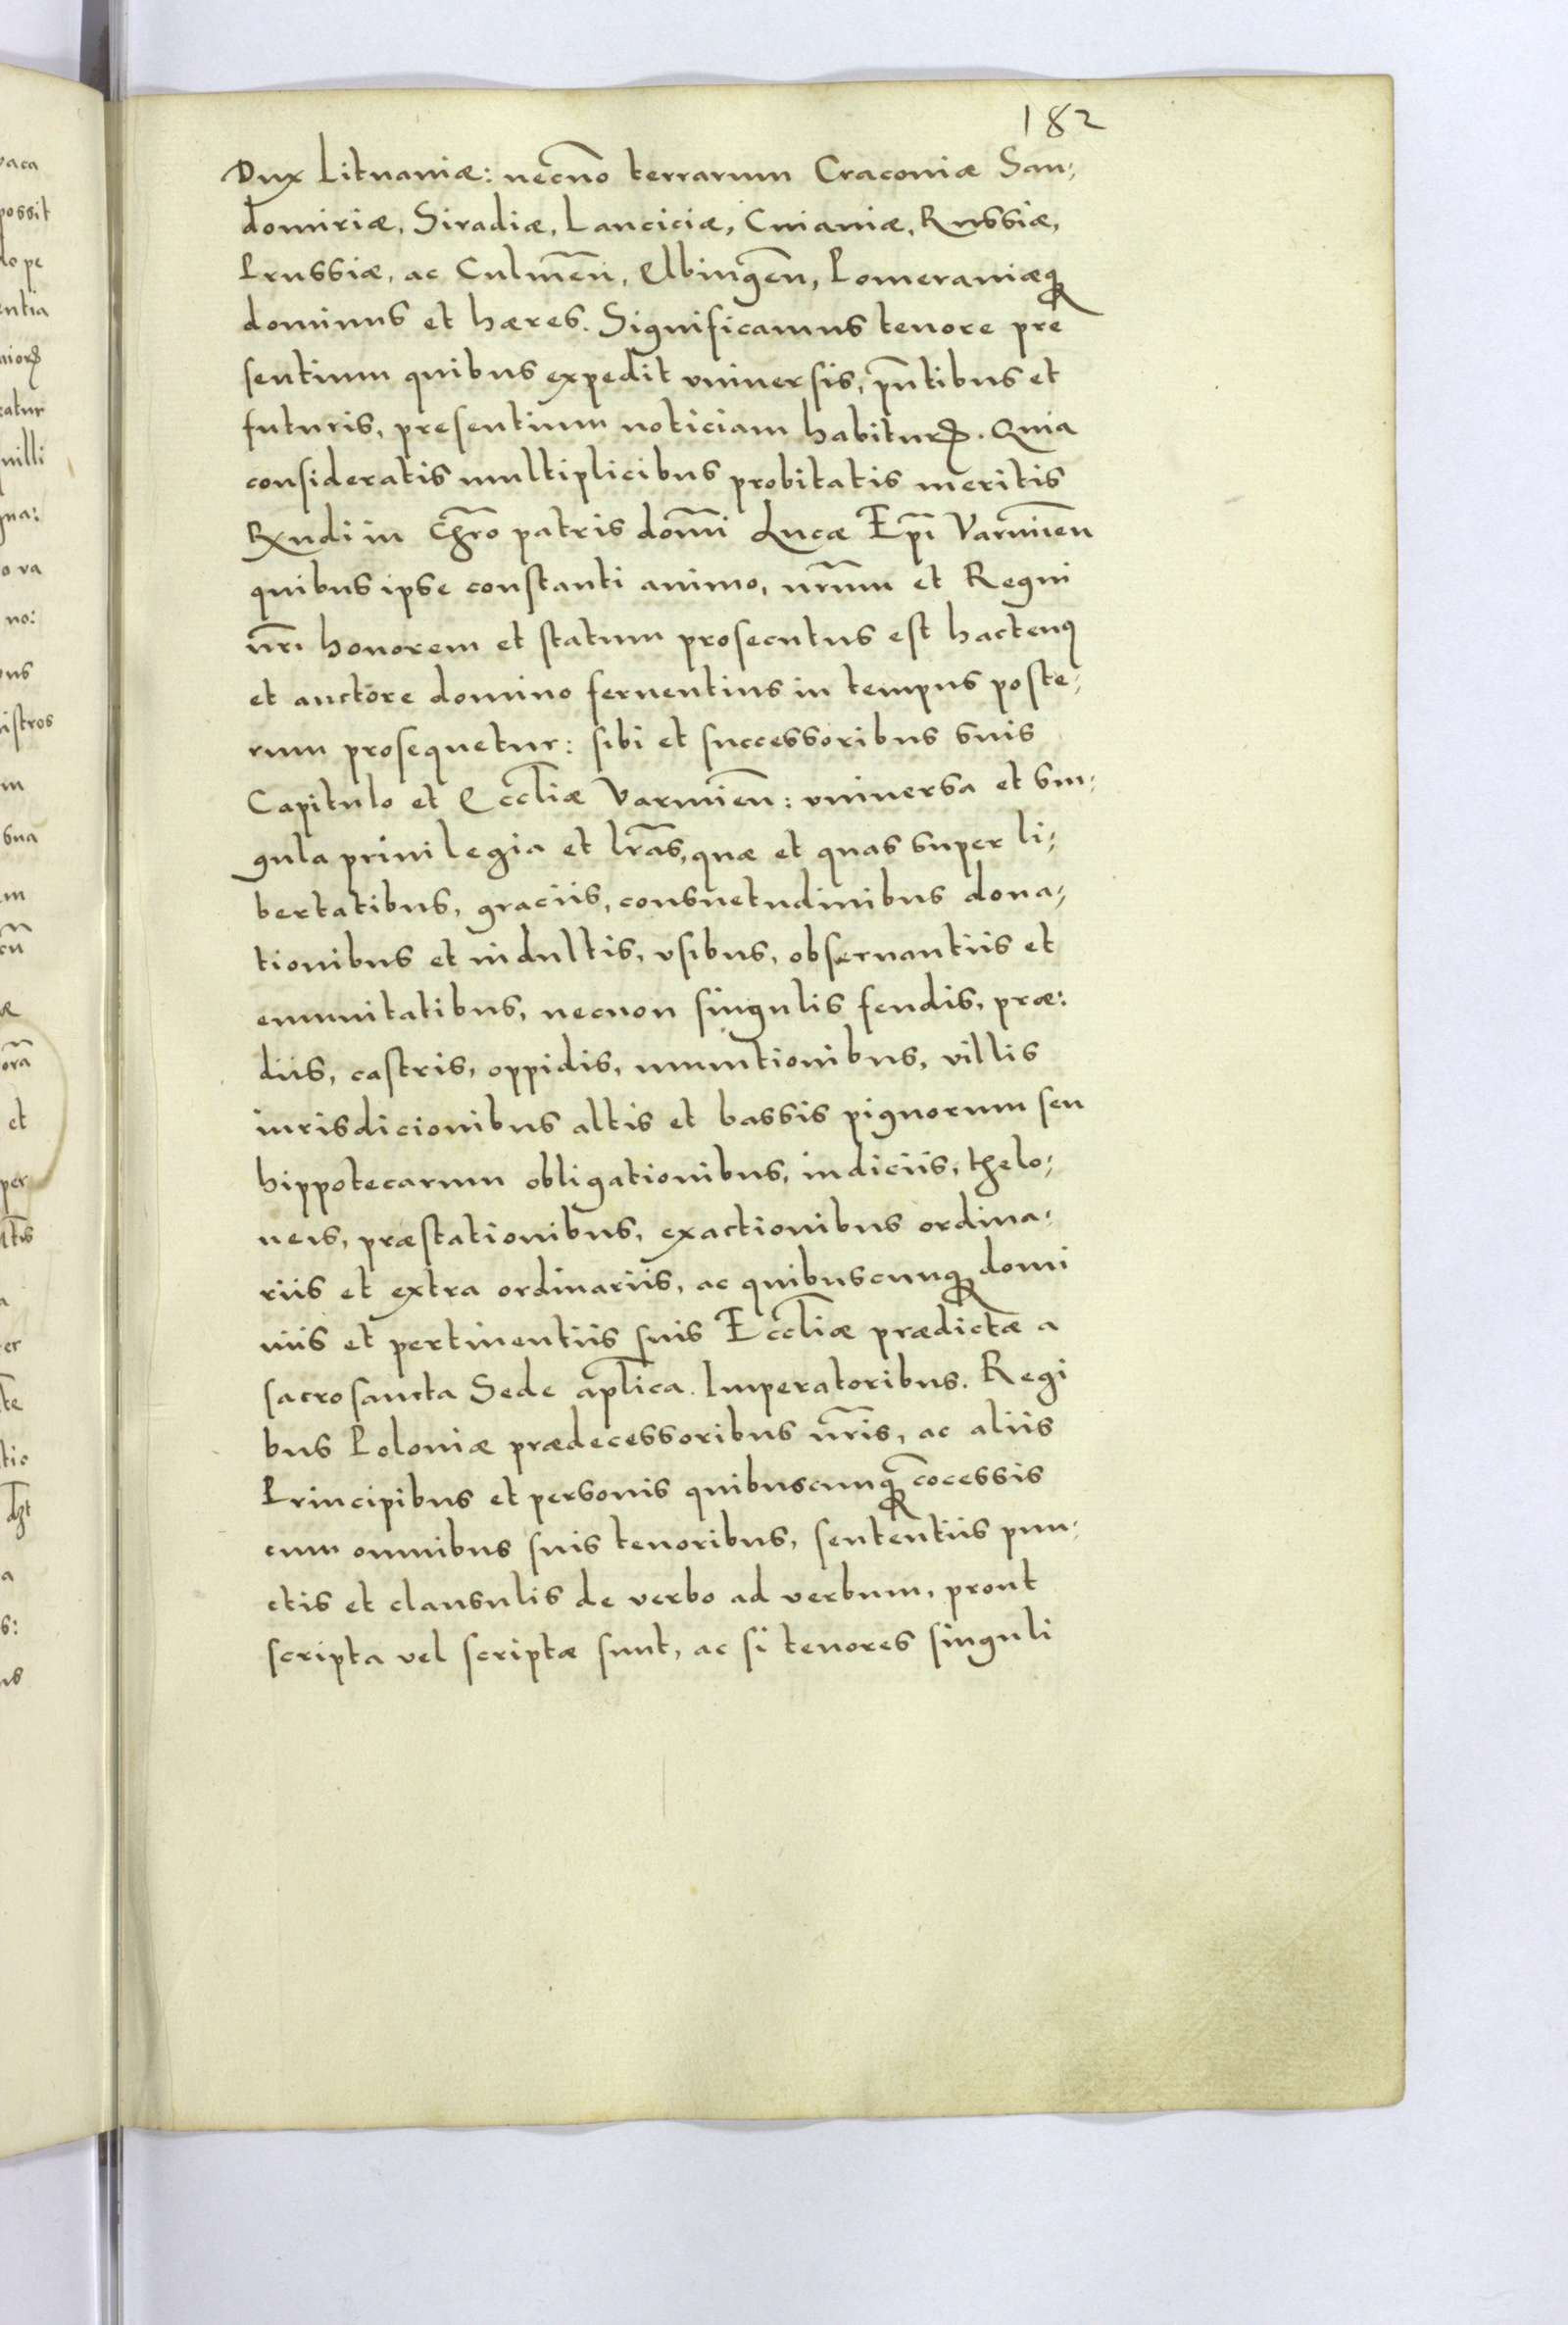 182
Dux Lituaniæ: necno͞ terrarum Craconiæ San⸗
domiriæ, Siradiæ, Lanciciæ, Cuiauiæ, Russiæ,
Prussiæ, ac Culme͞n, Elbinge͞n, Pomeraniæqꝫ
dominus et hæres. Significamus tenore pre
sentium quibus expedit vniuersis, pn͞tibus et
futuris, presentium noticiam habiturꝝ. Quia
consideratis multiplicibus probitatis meritis
Rx͞ndi in Chr͞o patris dom͞i Lucæ Ep͞i Varmie͞n
quibus ipse constanti animo, nr͞um et Regni
nr͞i honorem et statum prosecutus est hactenꝰ
et auctore domino feruentius in tempus poste⸗
rum prosequetur: sibi et successoribus suis
Capitulo et Eccl͞iæ Varmien͞: vniuersa et sin⸗
gula priuilegia et lr͞as, quæ et quas super li⸗
bertatibus, graciis, consuetudinibus dona⸗
tionibus et indultis, vsibus, obseruantiis et
emunitatibus, necnon singulis feudis, præ:
diis, castris, oppidis, munitionibus, villis
iurisdicionibus altis et bassis pignorum seu
hippotecarum obligationibus, iudiciis, thelo⸗
neis, præstationibus, exactionibus ordina⸗
riis et extra ordinariis, ac quibuscunqꝫ domi
niis et pertinentiis suis Eccl͞iæ prædictæ a
sacrosancta Sede apl͞ica. Imperatoribus. Regi
bus Poloniæ prædecessoribus nr͞is, ac aliis
Principibus et personis quibuscunqꝫ co͞cessis
cum omnibus suis tenoribus, sententiis pun⸗
ctis et clausulis de verbo ad verbum, prout
scripta vel scriptæ sunt, ac si tenores singuli